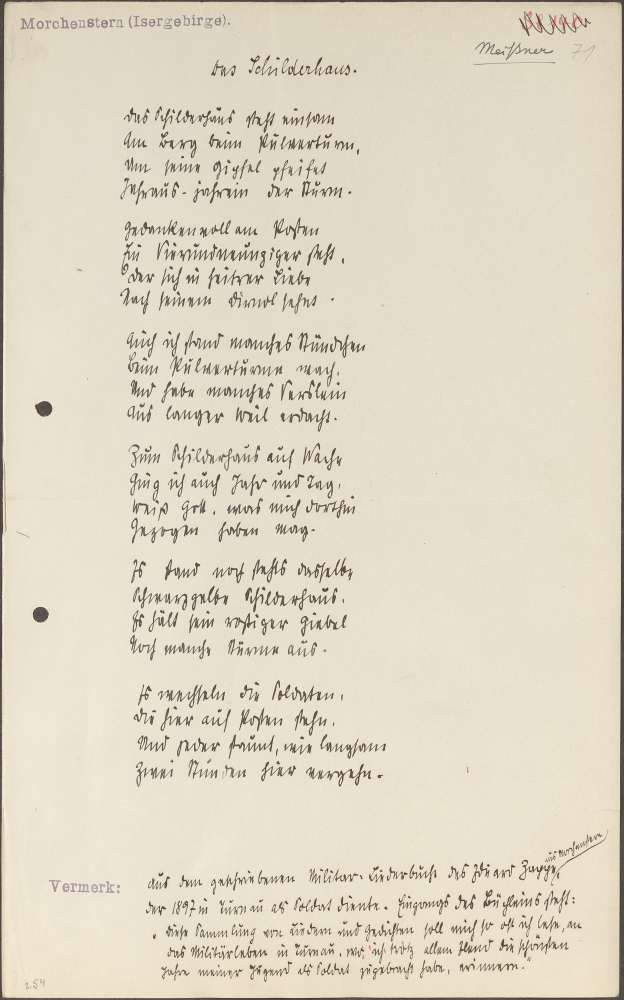 Morchenstern (Isergebirge).
Meißner 71
Das Schilderhaus.
Das Schilderhaus steht einsam
Am Berg beim Pulverturm,
Um seine Gipfel pfeifet
Jahraus-jahrein der Sturm.
Gedankenvoll am Posten
Ein Vierundneunziger steht,
Der sich in Liebe
Nach seinem Dirnol sehnt.
Auch ich stand manches Stündchen
Beim Pulverturme wach,
Und habe manches Verslein
Aus langer Weil erdacht.
Zum Schilderhaus auf Wache
Ging ich auch Jahr und Tag,
Weiß Gott, was mich dorthin
Gezogen haben mag.
Es stand noch stehts dasselbe
Schwarzgelbe Schilderhaus.
Es hält sein rostiger Giebel
Noch manche Stürme aus.
Es wechseln die Soldaten,
Die hier auf Posten stehn.
Und jeder staunt, wie langsam
Zwei Stunden hier vergehn.
aus Morchenstern
Vermerk: Aus dem geschriebenen Militär-Liederbuche des Eduard
der 1897 in Turnau als Soldat diente. Eingangs des Büchleins steht:
"Diese Sammlung von Liedern und Gedichten soll mich so oft ich lese, an
das Militärleben in Turnau, wo ich trotz allem Elend die schönsten
Jahre meiner Jugend als Soldat zugebracht habe, erinnern."
254